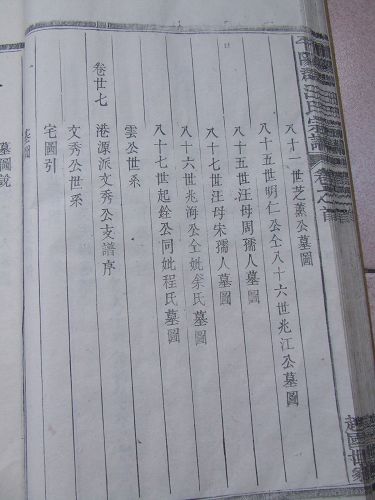 八十一世芝薰公墓圖
八十五世明仁公仝八十六世兆江公墓圖
八十五世汪母周孺人墓圖
八十七世汪母宋孺人墓圖
八十六世兆海公仝妣余氏墓圖
八十七世起銓公同妣程氏墓圖
雲公世系
卷廿七
港源派文秀公支譜序
文秀公世系
宅圖引
墓圖
墓圖說
越國世家